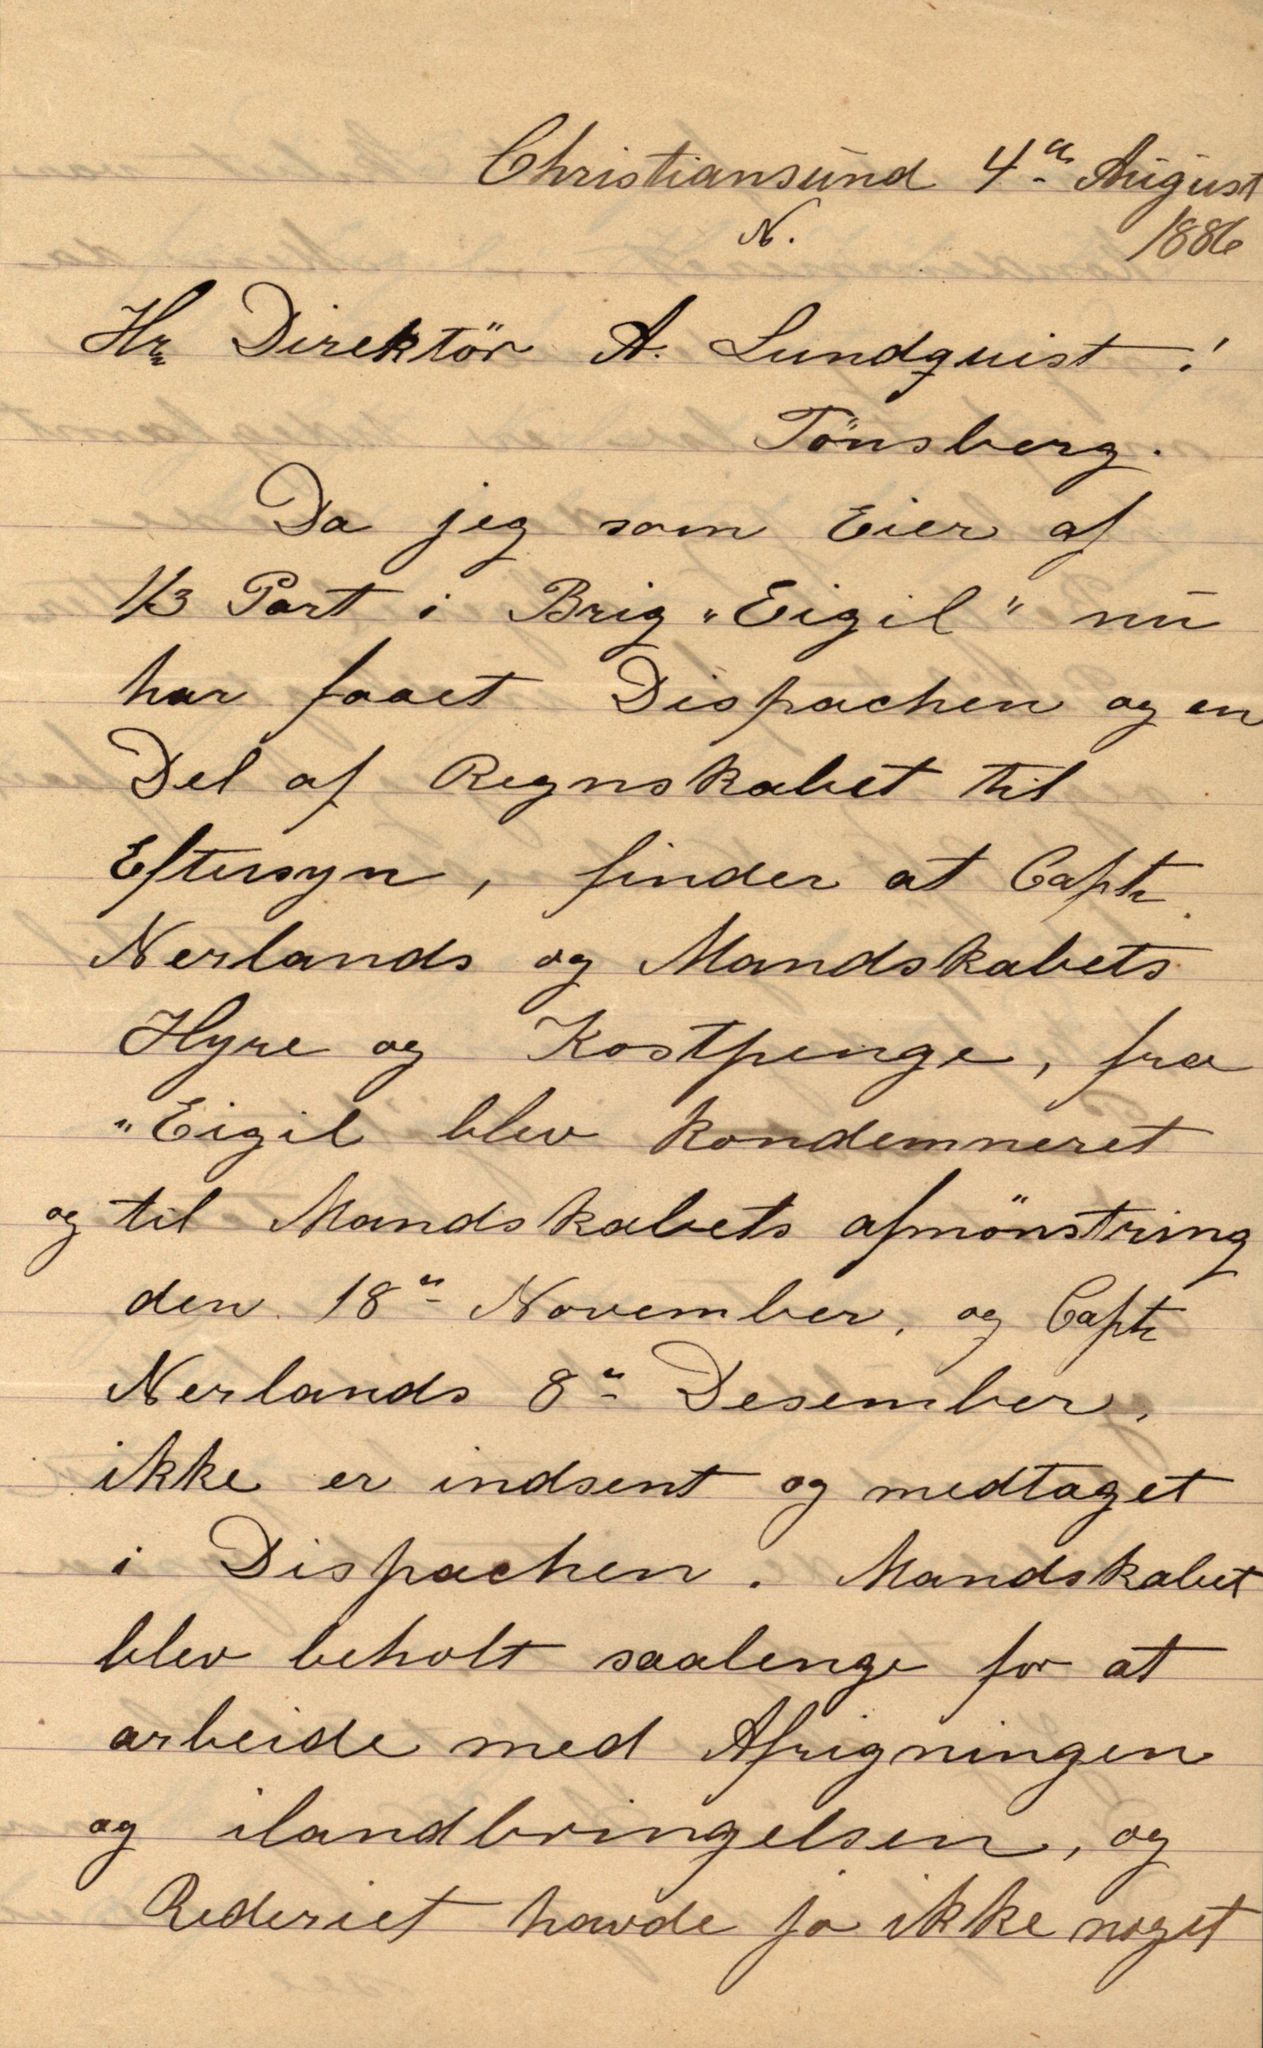 Christiansund 4de August
N. 1886
Hr Direktör A. Lundquist!
Tönsberg.
Da jeg som Eier af
1/3 Part i Brig „Eigil" nu
har faaet Dispachen og en
Del af Regnskabet til
Eftersyn, finder at Capt.
Nerlands og Mandskabets
Hyre og Kostpenge, fra
„Eigil blev kondemneret
og til Mandskabets afmönstring
den 18de November, og Capt
Nerlands 8de Desember,
ikke er indsent og medtaget
i Dispachen. Mandskabet
blev beholt saalenge for at
arbeide med Afrigningen
og ilandbringelsen, og
Rederiet havde jo ikke noget